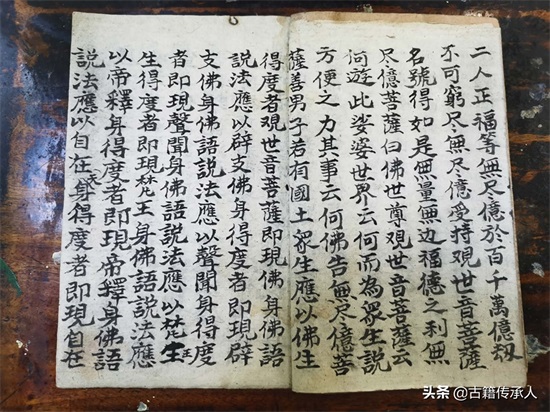 二人正福等無尺億於百千萬億刼
不可窮尽無尽億受持觀世音菩薩
名號得如是無量無边福德之利無
尽億菩薩曰佛世尊觀世音菩薩云
何遊此娑婆世界云何而為衆生說
方便之力其事云何佛告無尽億菩
薩善男子若有國土衆生應以佛生
得度者觀世音菩薩即現佛身佛語
說法應以辟支佛身得度者即現辟
支佛身佛語說法應以聲聞身得度
者即現聲聞身佛語說法應以梵生王
生得度者即現梵王身佛語說法應
以帝釋身得度者即現帝釋身佛語
說法應以自在身得度者即現自在
头条 @古籍传承人